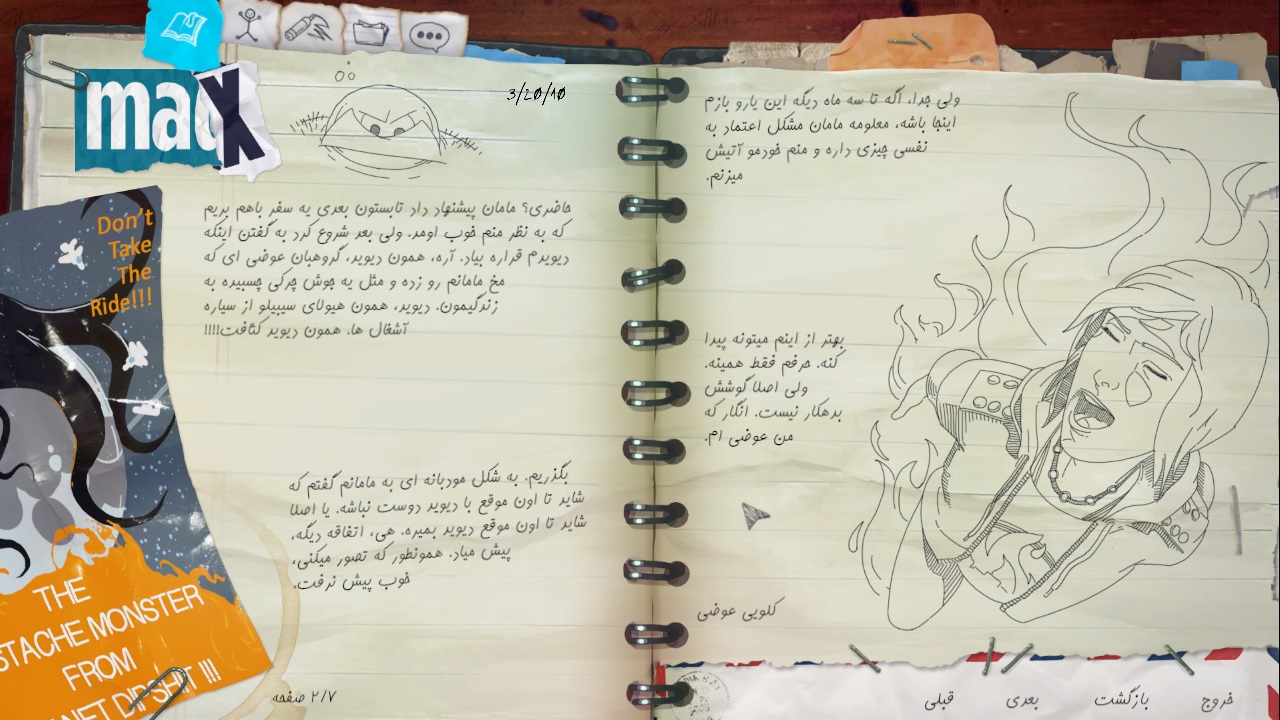 madX
3/20/10
Don't
Take
The
Ride!!!
حاضری؟ مامان پیشنهاد داد تابستون بعدی یه سفر باهم بریم
که به نظر منم خوب اومد. ولی بعد شروع کرد به گفتن اینکه
دیویدم قراره بیاد. آره، همون دیوید، گروهبان عوضی ای که
مخ مامانم رو زده و مثل یه جوش چرکی چسبیده به
زندگیمون. دیوید، همون هیولای سیبیلو از سیاره
آشغال ها. همون دیوید کثافت!!!!
بگذریم. به شکل مودبانه ای به مامانم گفتم که
شاید تا اون موقع با دیوید دوست نباشه. یا اصلا
شاید تا اون موقع دیوید بمیره. هی، اتفاقه دیگه،
پیش میاد. همونطور که تصور میکنی،
خوب پیش نرفت.
THE
STACHE MONSTER
FROM
ANET DIPSHIT !!!
صفحه ۲/۷
ولی جدا، اگه تا سه ماه دیگه این یارو بازم
اینجا باشه، معلومه مامان مشکل اعتماد به
نفسی چیزی داره و منم خودمو آتیش
میزنم.
بهتر از اینم میتونه پیدا
کنه. حرفم فقط همینه.
ولی اصلا گوشش
بدهکار نیست. انگار که
من عوضی ام.
کلویی عوضی
خروج
بازگشت
بعدی
قبلی